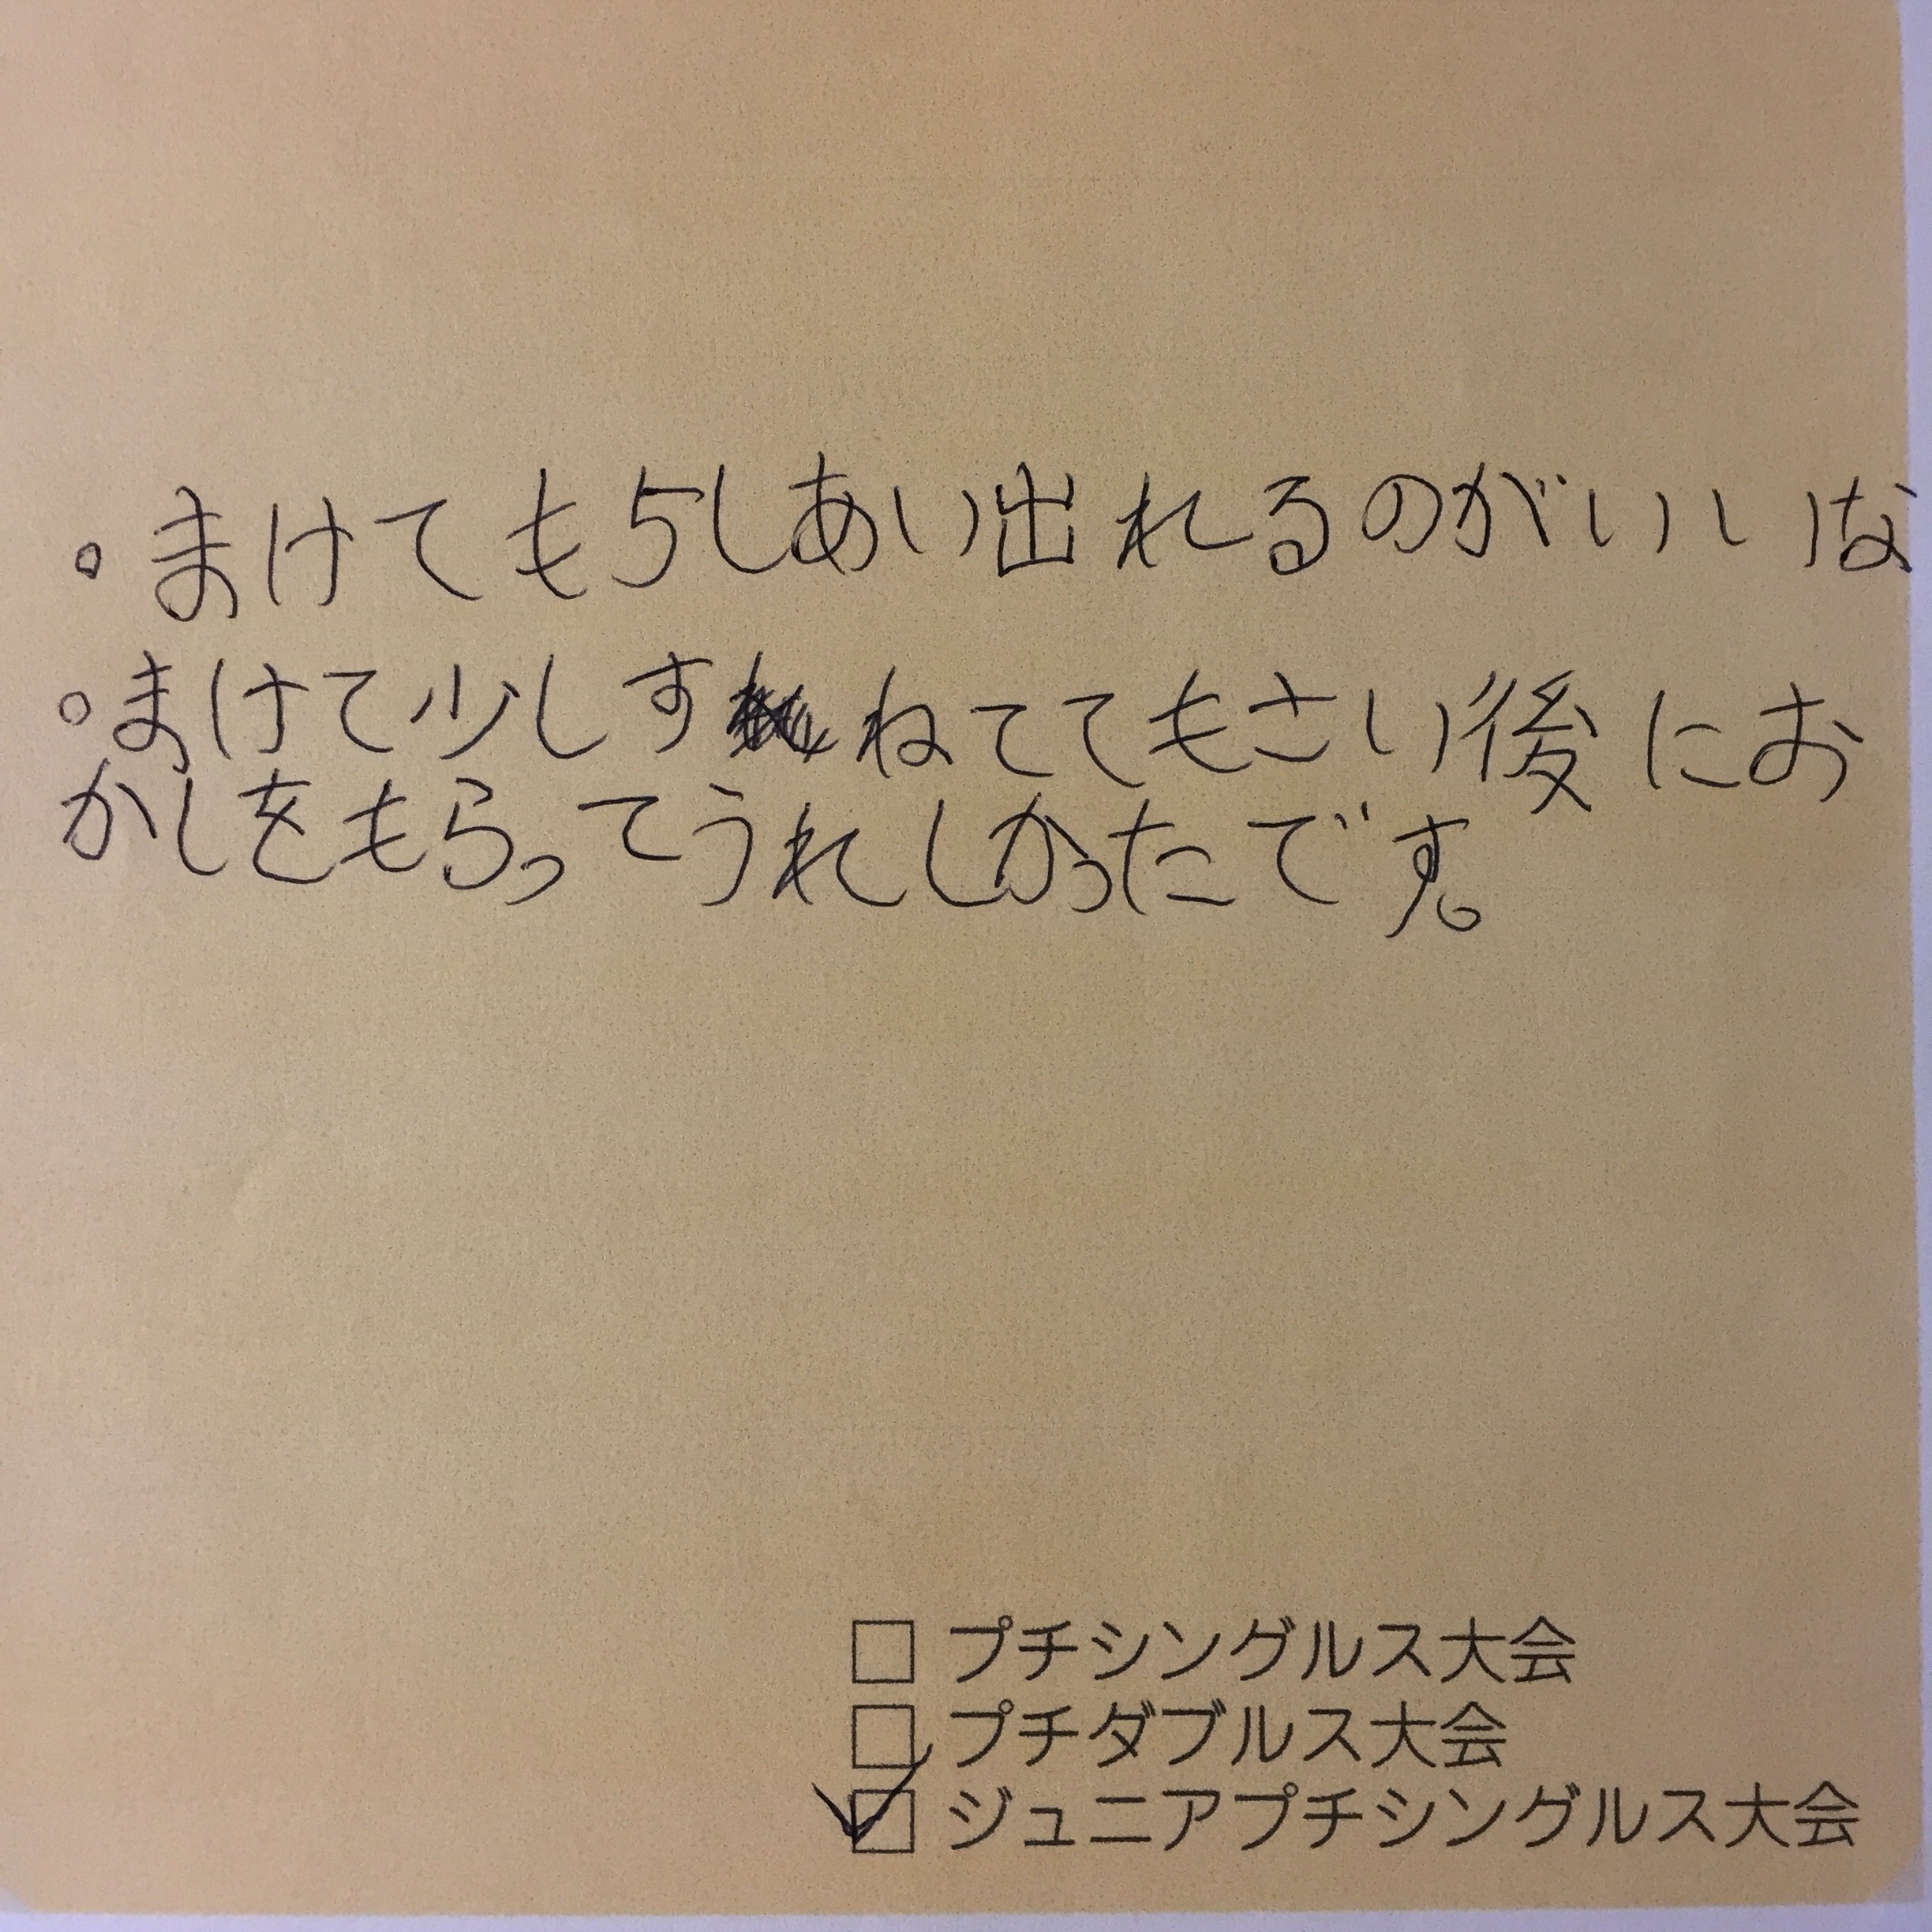 ・まけても5しあい出れるのがいいな
・まけて少しすねててもさい後にお
かしをもらってうれしかったです。
□ プチシングルス大会
□ プチダブルス大会
☑ ジュニアプチシングルス大会